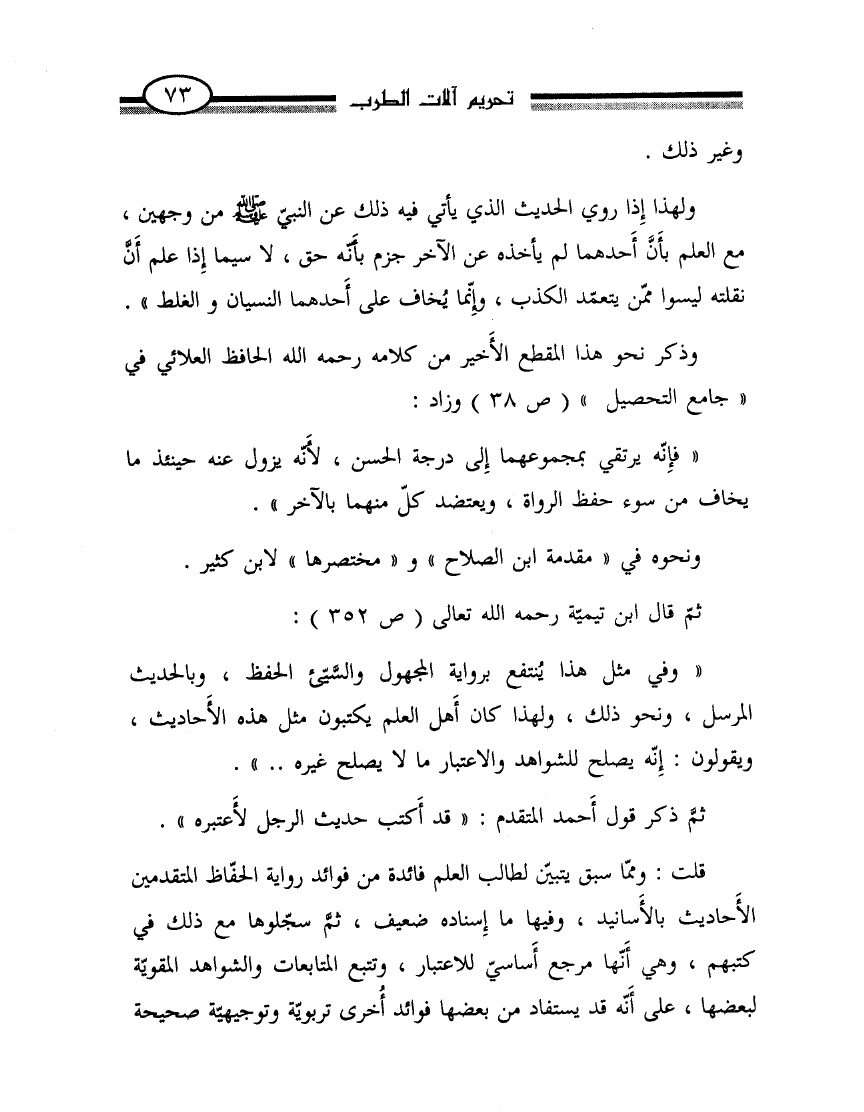 تحريم آلات الطرب ٧٣
وغير ذلك .
ولهذا إذا روي الحديث الذي يأتي فيه ذلك عن النبيّ ﷺ من وجهين ،
مع العلم بأنَّ أحدهما لم يأخذه عن الآخر جزم بأنّه حق ، لا سيما إذا علم أنَّ
نقلته ليسوا ممّن يتعمّد الكذب ، وإنّما يُخاف على أحدهما النسيان و الغلط » .
وذكر نحو هذا المقطع الأخير من كلامه رحمه الله الحافظ العلائي في
« جامع التحصيل » ( ص ٣٨ ) وزاد :
« فإنّه يرتقي بمجموعهما إلى درجة الحسن ، لأنّه يزول عنه حينئذ ما
يخاف من سوء حفظ الرواة ، ويعتضد كلّ منهما بالآخر » .
ونحوه في « مقدمة ابن الصلاح » و « مختصرها » لابن كثير .
ثمّ قال ابن تيميّة رحمه الله تعالى ( ص ٣٥٢ ) :
« وفي مثل هذا يُنتفع برواية المجهول والسَّيّئ الحفظ ، وبالحديث
المرسل ، ونحو ذلك ، ولهذا كان أهل العلم يكتبون مثل هذه الأحاديث ،
ويقولون : إنّه يصلح للشواهد والاعتبار ما لا يصلح غيره .. » .
ثمَّ ذكر قول أحمد المتقدم : « قد أكتب حديث الرجل لأعتبره » .
قلت : وممّا سبق يتبيّن لطالب العلم فائدة من فوائد رواية الحفّاظ المتقدمين
الأحاديث بالأسانيد ، وفيها ما إسناده ضعيف ، ثمَّ سجّلوها مع ذلك في
كتبهم ، وهي أنّها مرجع أساسيّ للاعتبار ، وتتبع المتابعات والشواهد المقويّة
لبعضها ، على أنّه قد يستفاد من بعضها فوائد أُخرى تربويّة وتوجيهيّة صحيحة